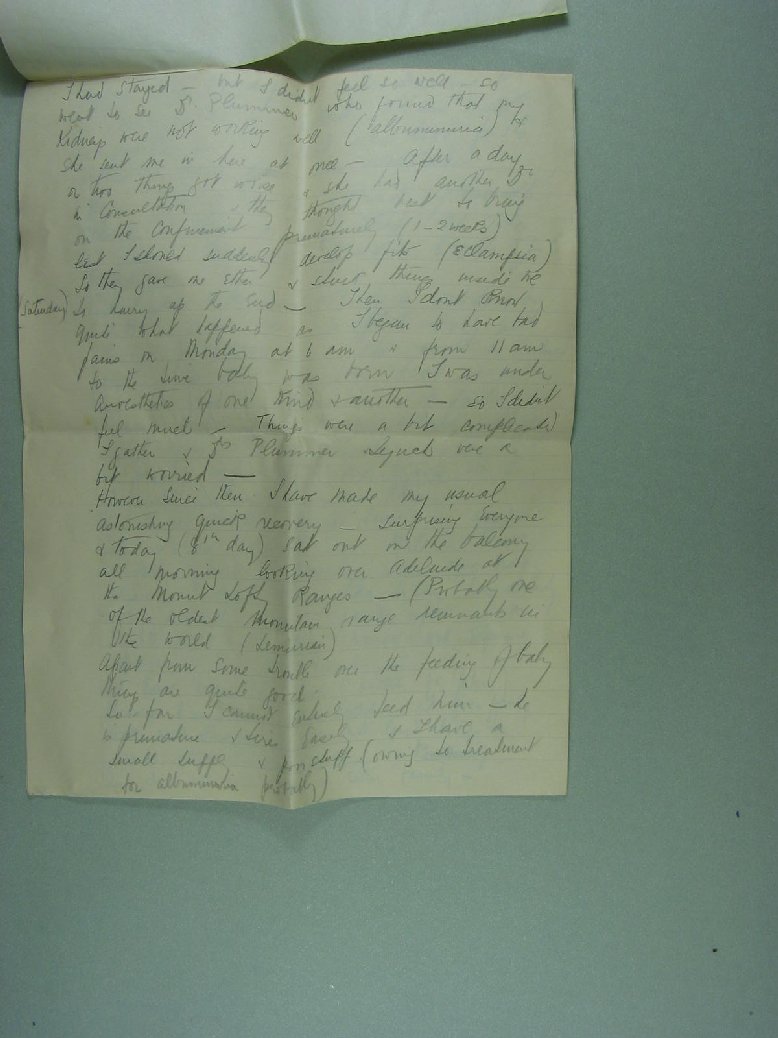 I had stayed — but I didnt feel so well — so
went to see Dr Plummer who found that my
Kidneys were not working well (albuminuria) &
she sent me in here at once — After a day
or two things got worse & she had another Dr
in Consultation & they thought best to bring
on the Confinement prematurely (1-2 weeks)
lest I should suddenly develop fits (Eclampsia)
So they gave me Ether & stuck things inside me
(Saturday) to hurry up the End — Then I dont know
quite what happened as I began to have bad
pains on Monday at 6 am & from 11 am
to the time baby was born I was under
Anaesthetics of one kind & another — so I didnt
feel much — Things were a bit complicated
I gather & Drs Plummer were a
bit worried —
However since then I have made my usual
astonishing quick recovery — surprising Everyone
& today (8th day) sat out on the balcony
all morning looking over Adelaide at
the Mount Lofty Ranges — (Probably one
of the oldest mountain range remnants in
the world (Lemurian)
Apart from some trouble over the feeding of baby
things are quite good.
So far I cannot entirely feed him — he
is premature & tires easily & I have a
small supply & poor stuff (owing to treatment
for albuminuria probably)